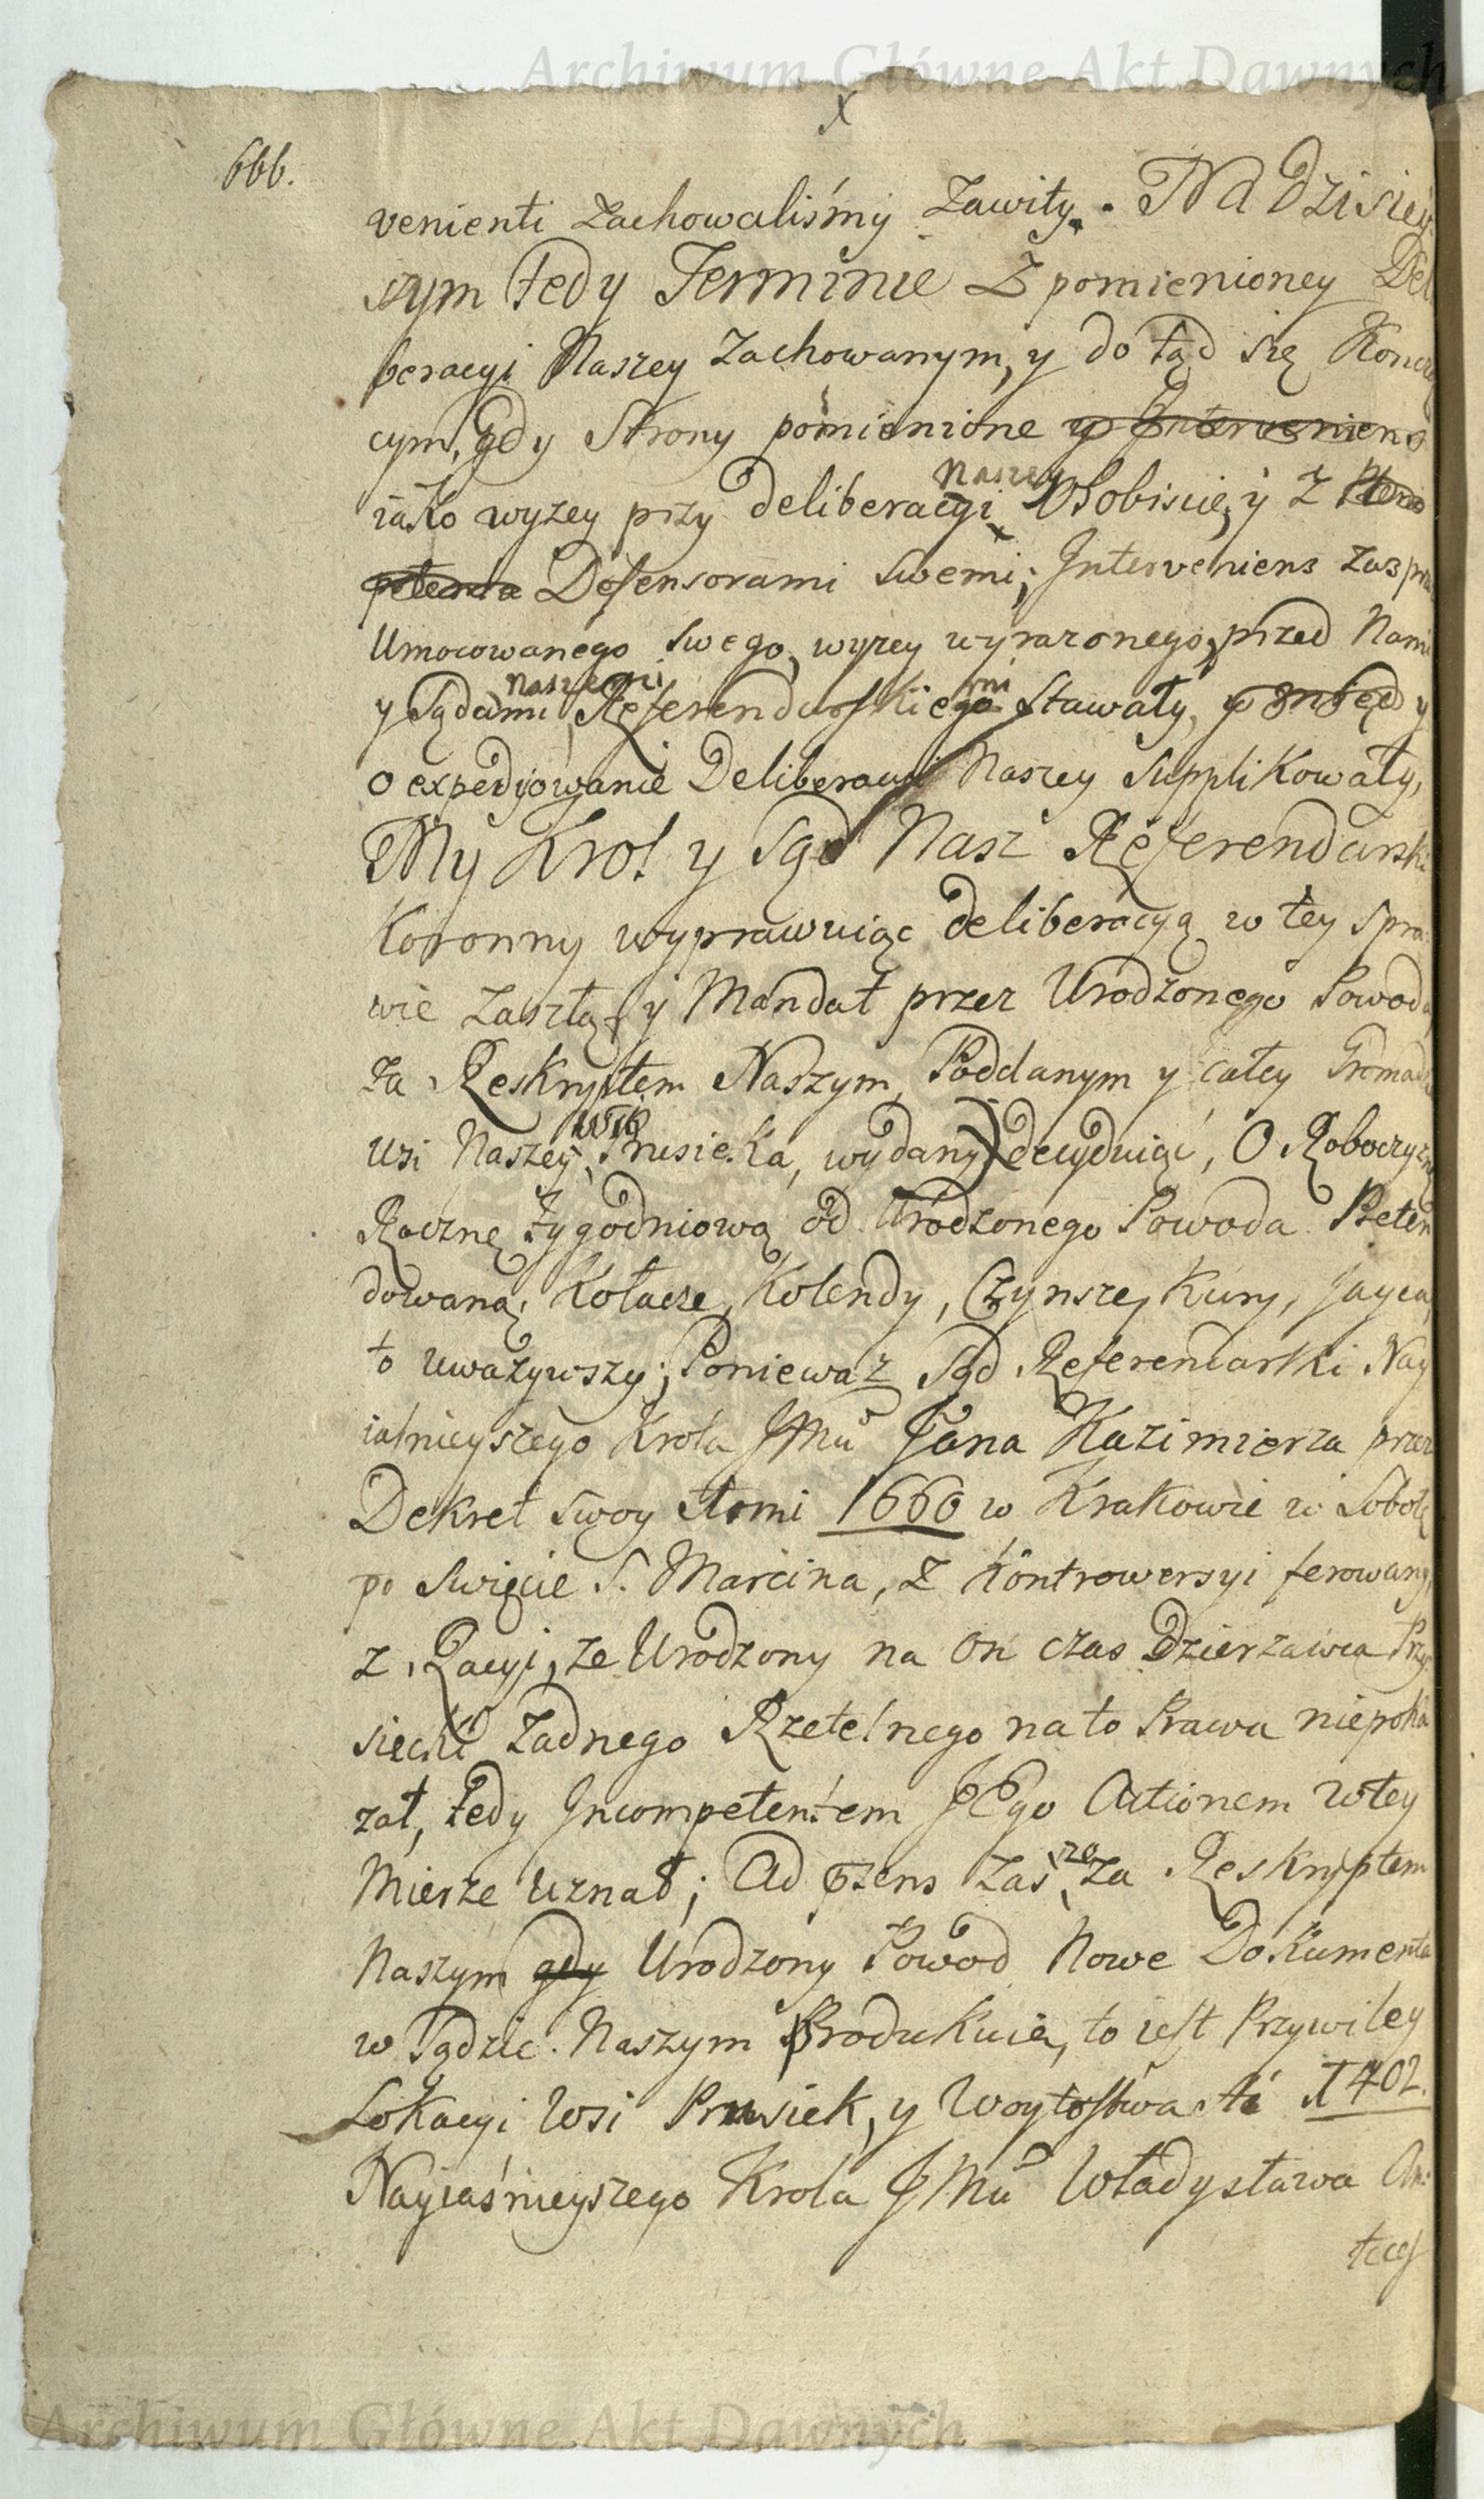 Archiwum Główne Akt Dawnych
x
666.
venienti zachowaliśmy zawity. Na dzisiey
szym tedy Terminie z pomienioney Deli
beracyi Naszey zachowanym, y do tąd się Kończą
cym, gdy Strony pomienione y Interveniens
iako wyzey przy deliberacyi Naszey Osobiscie, y z
Defensorami swemi; Interveniens zas prze
Umocowanego swego, wyzey wyrazonego, przed Nami
y Sądami Naszemi Referendarskiemi stawały, y
o expedyowanie Deliberacyi Naszey supplikowały,
My Krol y Sąd Nasz Referendarski
Koronny wyprawuiąc deliberacyą w tey spra
wie zaszłą, y Mandat przez Urodzonego Powoda
za Reskryptem Naszym, Poddanym y całey Gromadzie
Wsi Naszey Prusieka, wydany decyduiąc, O Roboczyznę
Roczną Tygodniową od Urodzonego Powoda Preten
dowaną, Kołacze, Kolendy, Czynsze, Kury, Jayca,
to uwazywszy; Poniewaz Sąd Referendarski Nay
iaśnieyszego Krola JMci Jana Kazimierza przez
Dekret swoy Anni 1660 w Krakowie w Sobotę
po Swięcie S. Marcina, z Kontrowersyi ferowany,
z Racyi, ze Urodzony na on czas Dzierzawca Pry
siecki zadnego Rzetelnego na to Prawa niepoka
zał, tedy Incompetentem JEgo Actionem w tey
Mierze uznał; Ad psens zaś ze za Reskryptem
Naszym gdy Urodzony Powod Nowe Dokumenta
w Sądzie Naszym Produkuie, to iest Przywiley
Lokacyi Wsi Prusiek, y Woytostwa A 1402.
Nayiaśnieyszego Krola JMci Władysława An:
teces
Archiwum Główne Akt Dawnych